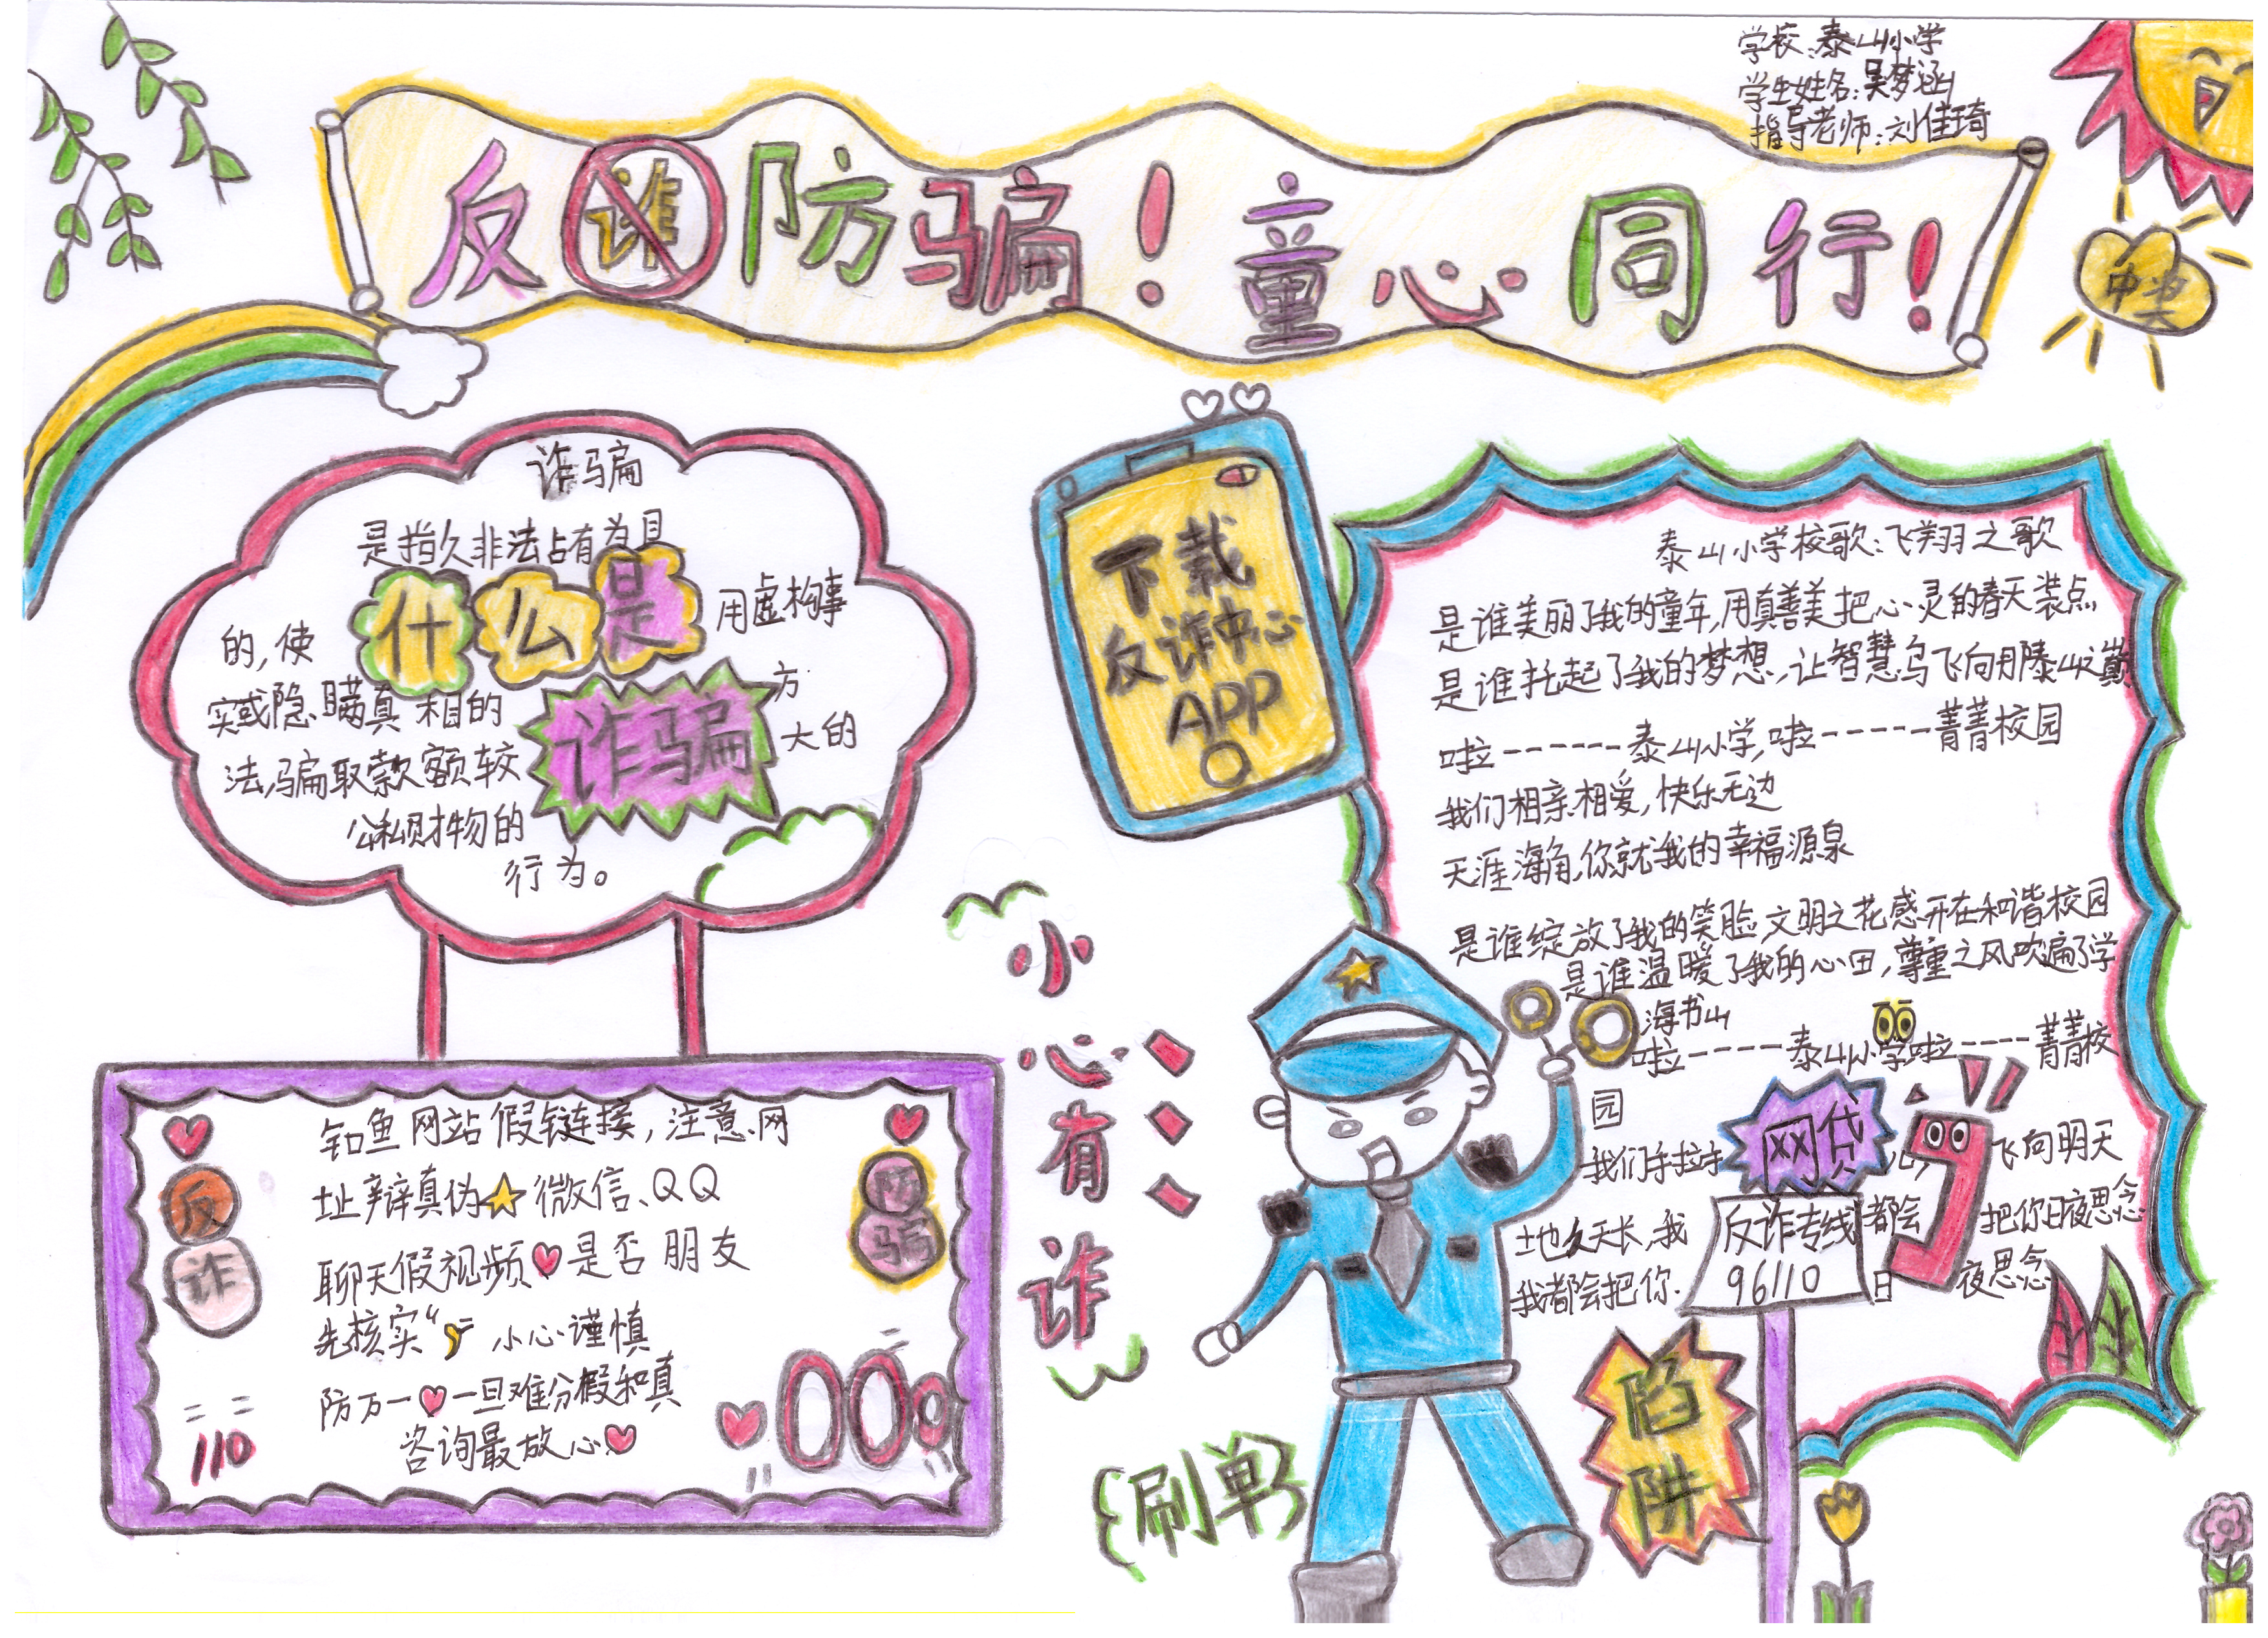 学校:泰山小学
学生姓名:吴梦涵
指导老师:刘佳琦
反诈防骗!童心同行!
中奖
诈骗
是指久非法占有为目
什么是
的,使 用虚构事
实或隐瞒真相的 方
诈骗
法,骗取款额较 大的
公私财物的
行为。
下载
反诈中心
APP
泰山小学校歌:飞翔之歌
是谁美丽了我的童年,用真善美把心灵的春天装点
是谁托起了我的梦想,让智慧鸟飞向泰山之巅
啦------泰山小学,啦------菁菁校园
我们相亲相爱,快乐无边
天涯海角,你就我的幸福源泉
是谁绽放了我的笑脸,文明之花感开在和谐校园
是谁温暖了我的心田,尊重之风吹遍了学
海书山
啦-----泰山小学啦----菁菁校
园
我们手拉手 飞向明天
网贷
土也久天长,我 都会 把你日夜思念
我都会把你. 日 夜思念
反诈专线
96110
小心有诈
钓鱼网站假链接,注意网
址辩真伪 微信、QQ
聊天假视频 是否朋友
先核实“ 小心谨慎
防万一 一旦难分假和真
咨询最放心
反诈
防骗
110
刷单
陷阱